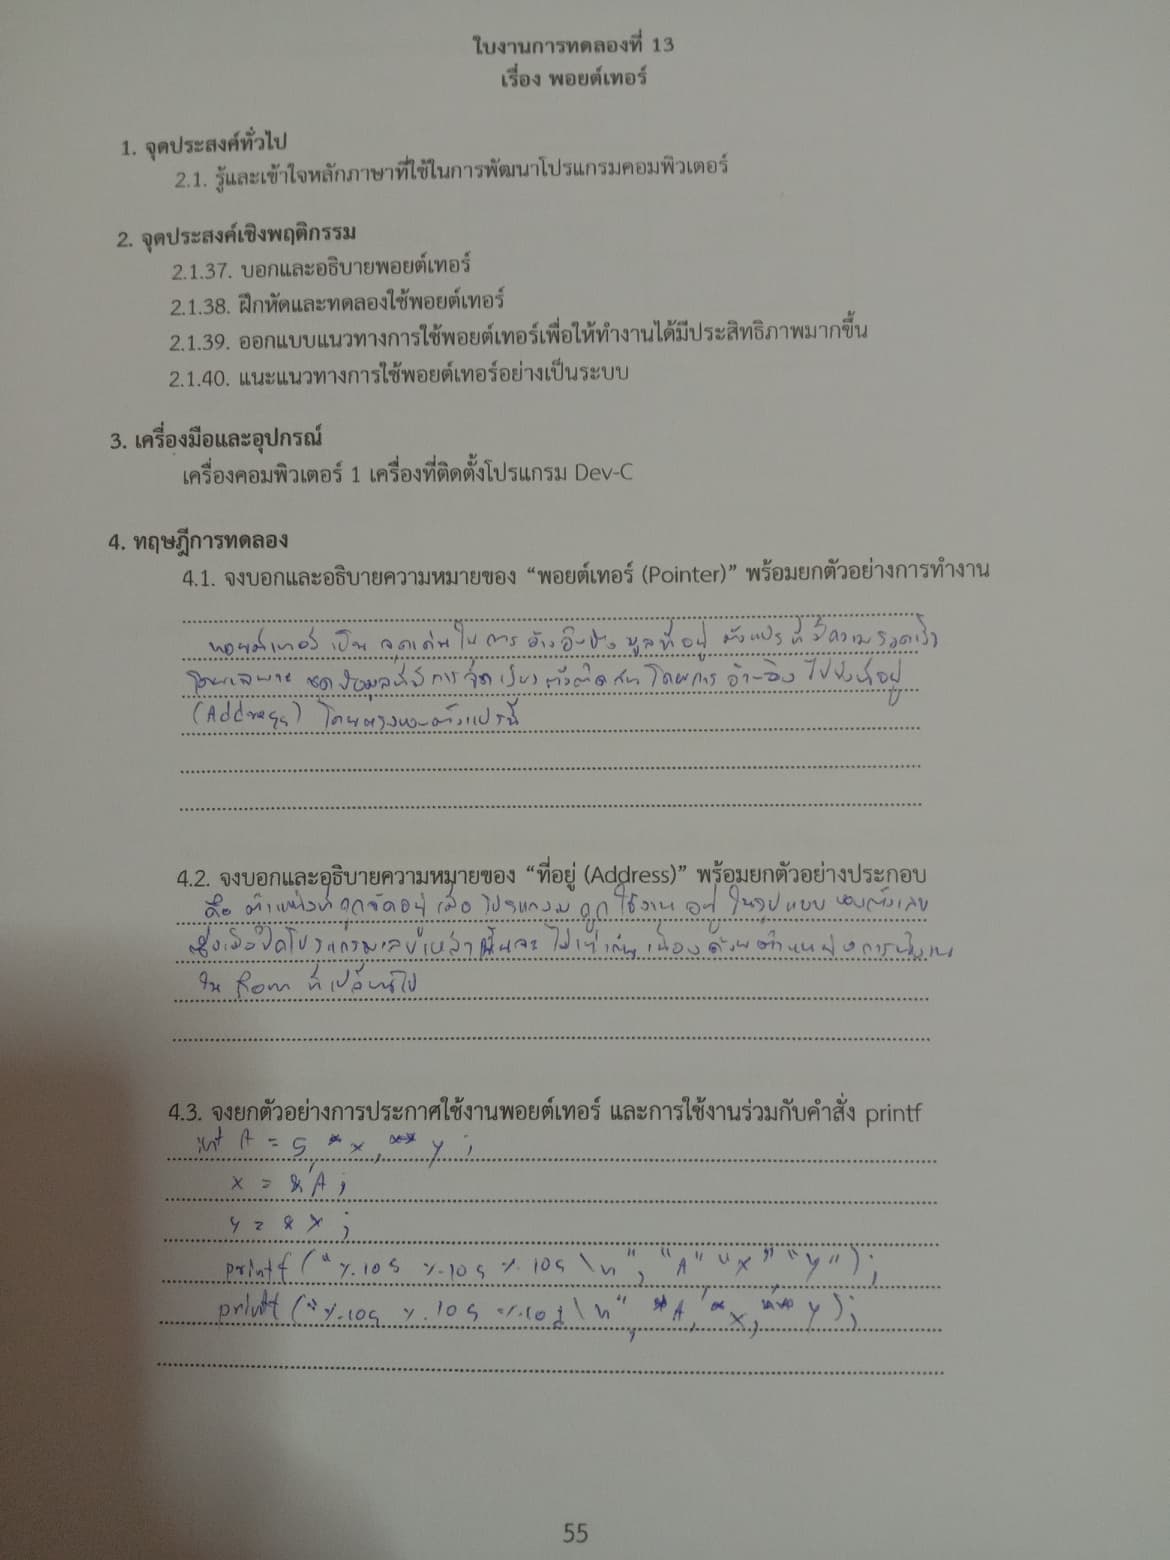 ใบงานการทดลองที่ 13
เรื่อง พอยต์เทอร์
1. จุดประสงค์ทั่วไป
2.1. รู้และเข้าใจหลักภาษาที่ใช้ในการพัฒนาโปรแกรมคอมพิวเตอร์
2. จุดประสงค์เชิงพฤติกรรม
2.1.37. บอกและอธิบายพอยต์เทอร์
2.1.38. ฝึกหัดและทดลองใช้พอยต์เทอร์
2.1.39. ออกแบบแนวทางการใช้พอยต์เทอร์เพื่อให้ทำงานได้มีประสิทธิภาพมากขึ้น
2.1.40. แนะแนวทางการใช้พอยต์เทอร์อย่างเป็นระบบ
3. เครื่องมือและอุปกรณ์
เครื่องคอมพิวเตอร์ 1 เครื่องที่ติดตั้งโปรแกรม Dev-C
4. ทฤษฎีการทดลอง
4.1. จงบอกและอธิบายความหมายของ “พอยต์เทอร์ (Pointer)” พร้อมยกตัวอย่างการทำงาน
พอยต์เทอร์ เป็น จุดเด่นใน การ อ้างอิงถึง ที่อยู่ ตัวแปร ที่ มีความรวดเร็ว
โดยเฉพาะ ชุดข้อมูลที่มี การ จัดเรียง ติดกัน โดยการ อ้างอิง ไปยังที่อยู่
(Address) โดยตรงของตัวแปรนี้
4.2. จงบอกและอธิบายความหมายของ “ที่อยู่ (Address)” พร้อมยกตัวอย่างประกอบ
คือ ตำแหน่งที่ ถูกจัดอยู่ เมื่อ โปรแกรม ถูก ใช้งาน อยู่ ในรูปแบบ ของตัวเลข
ซึ่งเมื่อปิดโปรแกรมเลขเหล่านี้จะ ไม่เท่าเดิม เนื่อง ด้วยตำแหน่งการใช้งาน
ใน ที่เปลี่ยนไป
4.3. จงยกตัวอย่างการประกาศใช้งานพอยต์เทอร์ และการใช้งานร่วมกับคำสั่ง printf
int A = 5, *x, ** y ;
x = &A ;
y = & x ;
printf ("%-10s %-10s %-10s \n", "A" "x" "y" );
printf ("%-10s %-10s \n", *x, y );
55